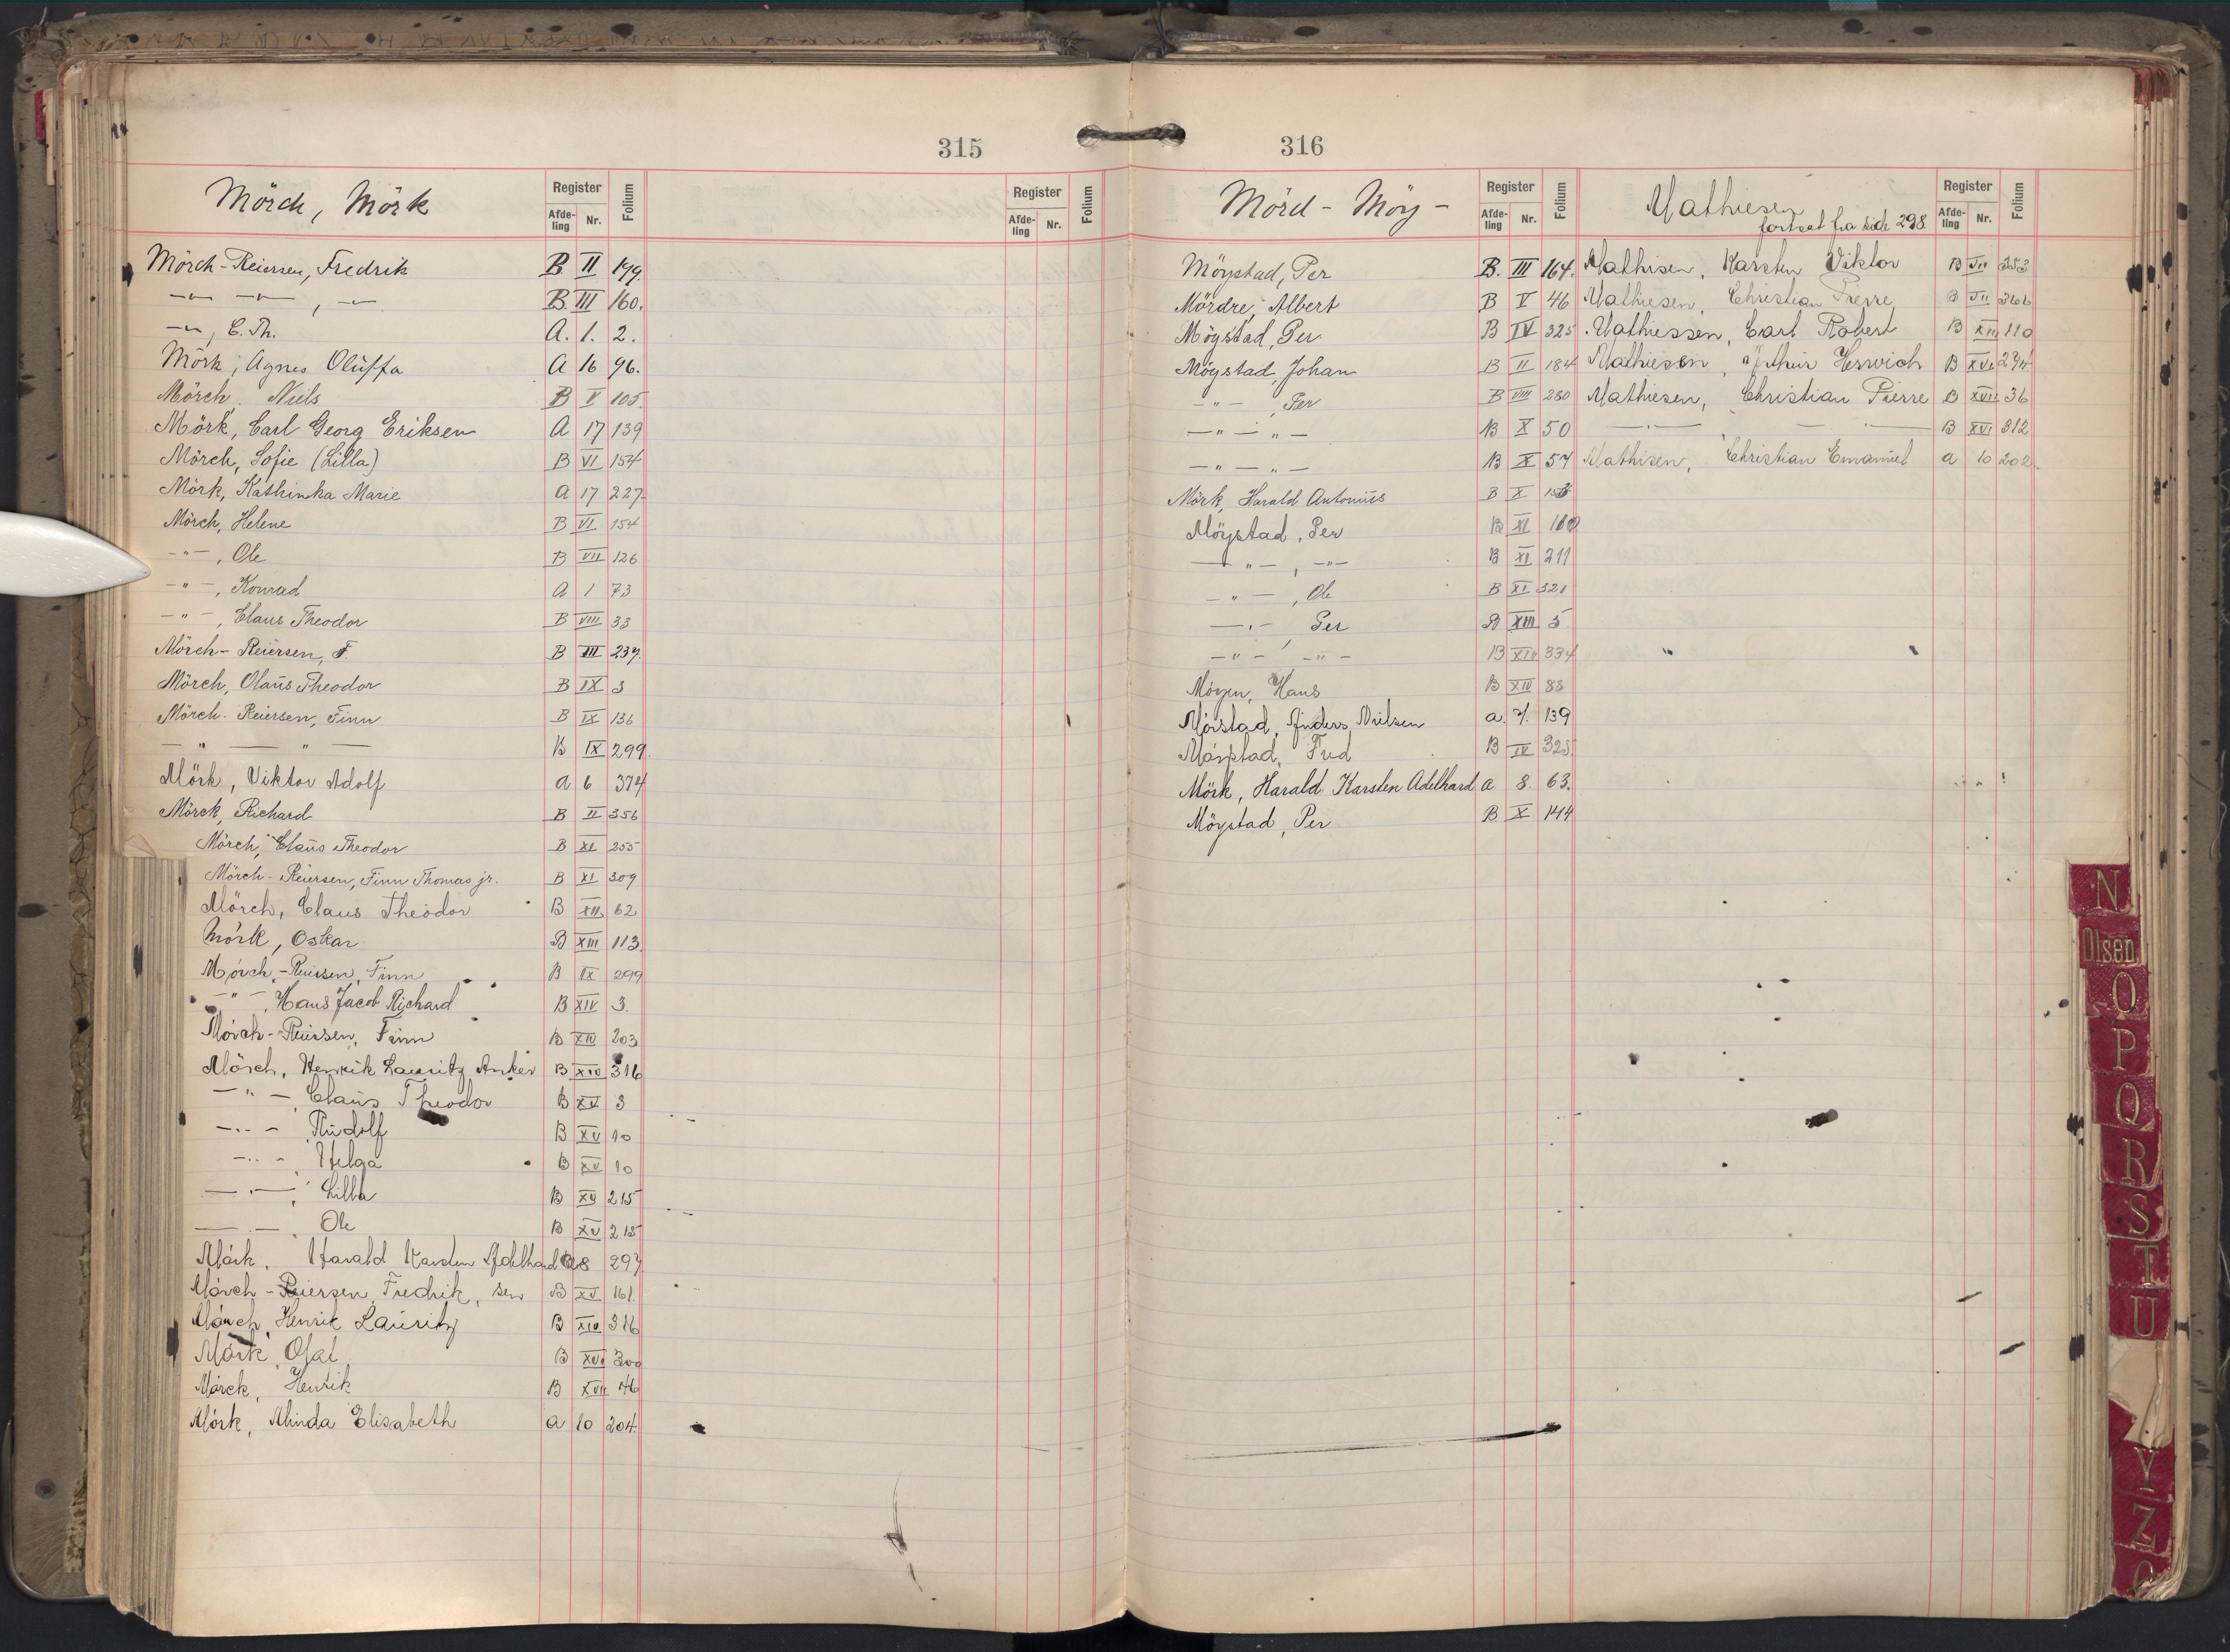 315
Mörch, Mörk
Register Folium
Afde-ling Nr.
Register Folium
Afde-ling Nr.
Mörch-Reiersen, Fredrik B II 199.
-"- -"-, -"- B. III 160.
-"-, C. Th. A. 1. 2.
Mörk, Agnes Oluffa A 16 96.
Mörch, Niels B V 105.
Mörk, Carl Georg Eriksen A 17 139
Mörch, Sofie (Lilla) B VI 154
Mörk, Kathinka Marie A 17 227.
Mörch, Helene B VI 154
-"-, Ole B VII 126
-"-, Konrad A 1 73
-"-, Claus Theodor B VIII 33
Mörch-Reiersen, F. B III 237.
Mörch, Olaus Theodor B IX 3
Mörch-Reiersen, Finn B IX 136
-"- -"- B IX 299.
Mörk, Viktor Adolf A 6 374
Mörck, Richard B II 356
Mörch, Claus Theodor B XI 255
Mörch-Reiersen, Finn Thomas jr. B XI 309
Mörch, Claus Theodor B XII 62
Mörk, Oskar B XIII 113.
Mörch-Reiersen, Finn B IX 299
-"-, Hans Jacob Richard B XIV 3.
Mörch-Reiersen, Finn B XIV 203
Mörch, Henrik Lauritz Anker B XIV 316
-"-, Claus Theodor B XV 3
-"-, Rudolf B XV 10
-"-, Helga B XV 10
-"-, Lilla B XV 215
-"-, Ole B XV 215
Mörk, Harald Karsten Adelhard A 8 297
Mörch-Reiersen, Fredrik, sen B XV 161.
Mörch, Henrik Lauritz B XIV 316
Mörk, Olaf B XVI 300
Mörck, Henrik B XVII 46
Mörk, Minda Elisabeth A 10 204.
316
Mörd- Möy-
Register Folium
Afde-ling Nr.
Möystad, Per B. III 164.
Mördre, Albert B V 46
Möystad, Per B IV 325
Möystad, Johan B II 184
-"-, Per B VIII 280
-"- -"- B X 50
-"- -"- B X 57
Mörk, Harald Antonius B X
Möystad, Per B XI 160
-"-, -"- B XI 211
-"-, Ole B XI 321
-"-, Per B XIII 5
-"-, -"- B XIII 334
Möyen, Hans B XIV 88
Mörstad, Anders Nielsen A. 7. 139
Möystad, Fred B IV 325.
Mörk, Harald Karsten Adelhard A 8. 63.
Möystad, Per B X 144
Mathiesen
fortsat fra side 298
Register Folium
Afde-ling Nr.
Mathisen, Karsten Viktor B VII 353
Mathiesen, Christian Pierre B VII 366
Mathiessen, Carl Robert B XIII 110
Mathiesen, Arthur Herwich B XVI 274
Mathiesen, Christian Pierre B XVII 36
-"- -"- B XVI 312
Mathisen, Christian Emanuel A 10 202.
N
Olsen
O
P
Q
R
S
T
U
Y
Z